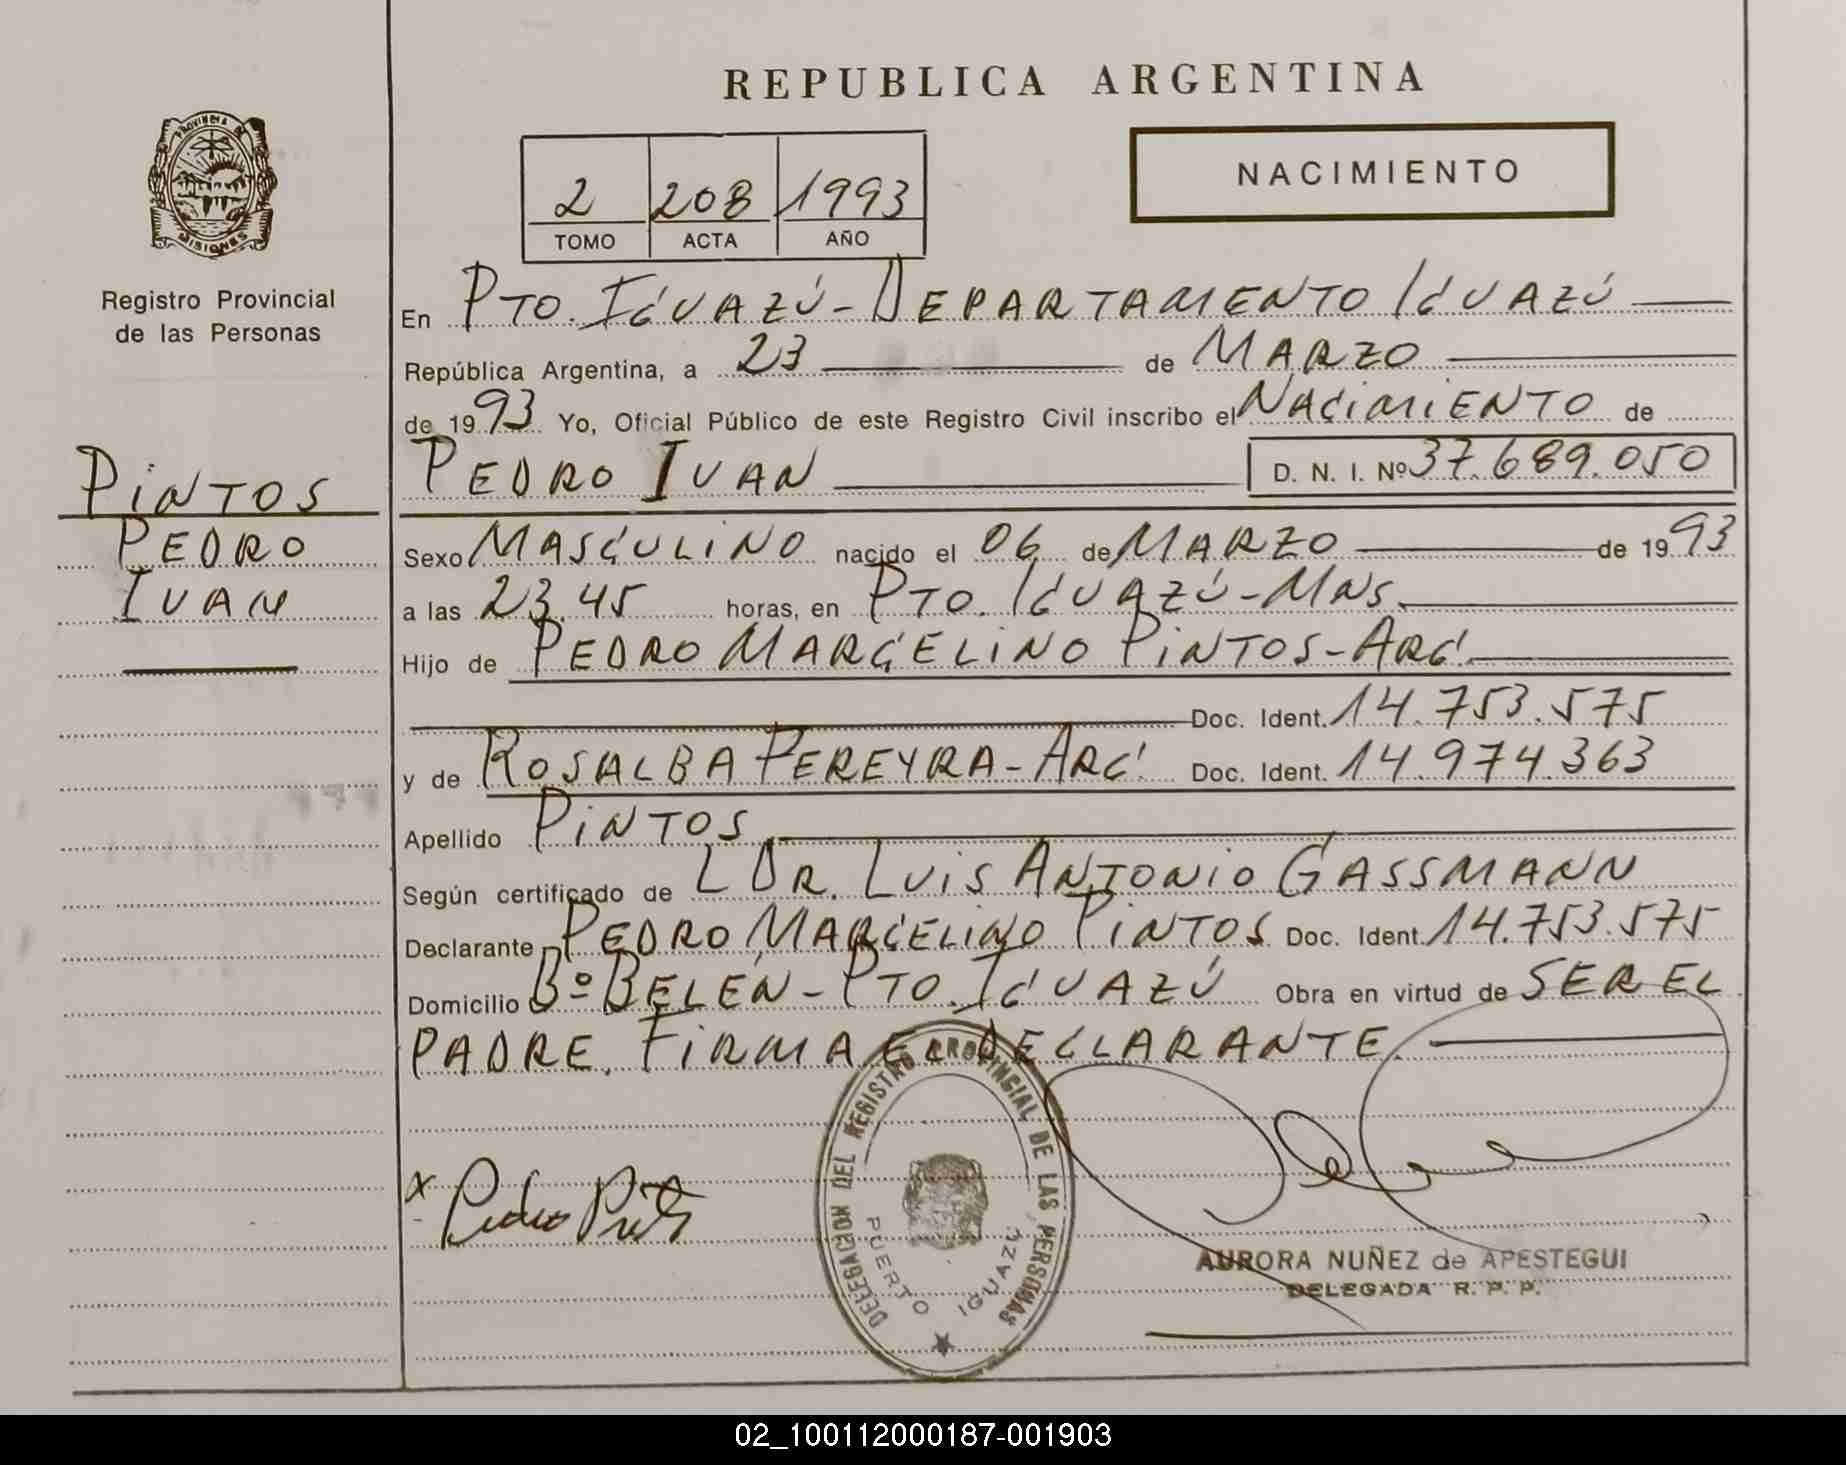 REPUBLICA ARGENTINA
PROVINCIA DE
MISIONES
Registro Provincial
de las Personas
2 208 1993
TOMO ACTA AÑO
NACIMIENTO
En PTO. IGUAZÚ - DEPARTAMENTO IGUAZÚ
República Argentina, a 23 de MARZO
de 1993 Yo, Oficial Público de este Registro Civil inscribo el NACIMIENTO de
PEDRO IVAN D. N. I. Nº 37.689.050
PINTOS
PEDRO
IVAN
Sexo MASCULINO nacido el 06 de MARZO de 1993
a las 23.45 horas, en PTO. IGUAZÚ - MNS.
Hijo de PEDRO MARCELINO PINTOS - ARG.
Doc. Ident. 14.753.575
y de ROSALBA PEREYRA - ARG. Doc. Ident. 14.974.363
Apellido PINTOS
Según certificado de L DR. LUIS ANTONIO GASSMANN
Declarante PEDRO MARCELINO PINTOS Doc. Ident. 14.753.575
Domicilio Bº BELÉN - PTO. IGUAZÚ Obra en virtud de SER EL
PADRE. FIRMA EL DECLARANTE.
x Pedro Pintos
DELEGACION DEL REGISTRO PROVINCIAL DE LAS PERSONAS
PUERTO IGUAZU
AURORA NUÑEZ de APESTEGUI
DELEGADA R. P. P.
02_100112000187-001903